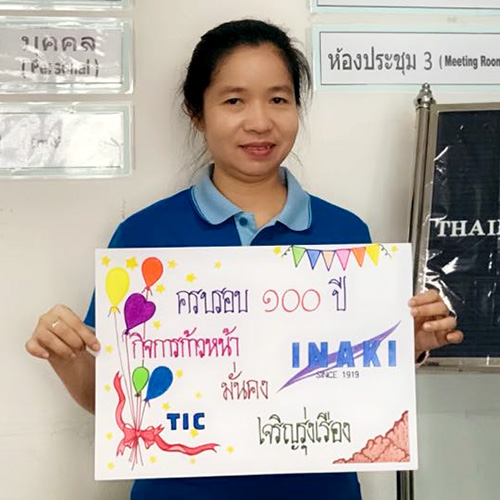 บุคคล
( Personal )
ห้องประชุม 3 ( Meeting Room
THAI
ครบรอบ ๑๐๐ ปี
กิจการก้าวหน้า
INAKI
SINCE 1919
มั่นคง
TIC
เจริญรุ่งเรือง